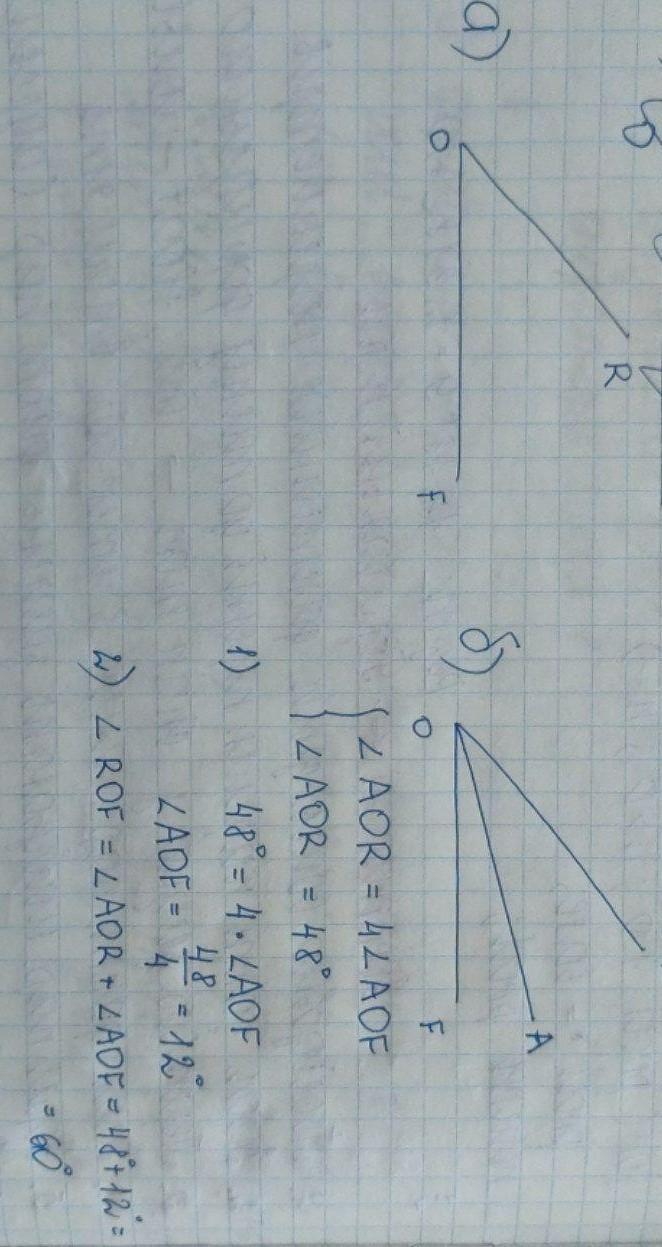 а)
O
R
F
б)
O
A
F
∠ AOR = 4∠ AOF
∠ AOR = 48°
1) 48° = 4 · ∠AOF
∠AOF = 48/4 = 12°
2) ∠ ROF = ∠AOR + ∠AOF = 48°+12° =
= 60°